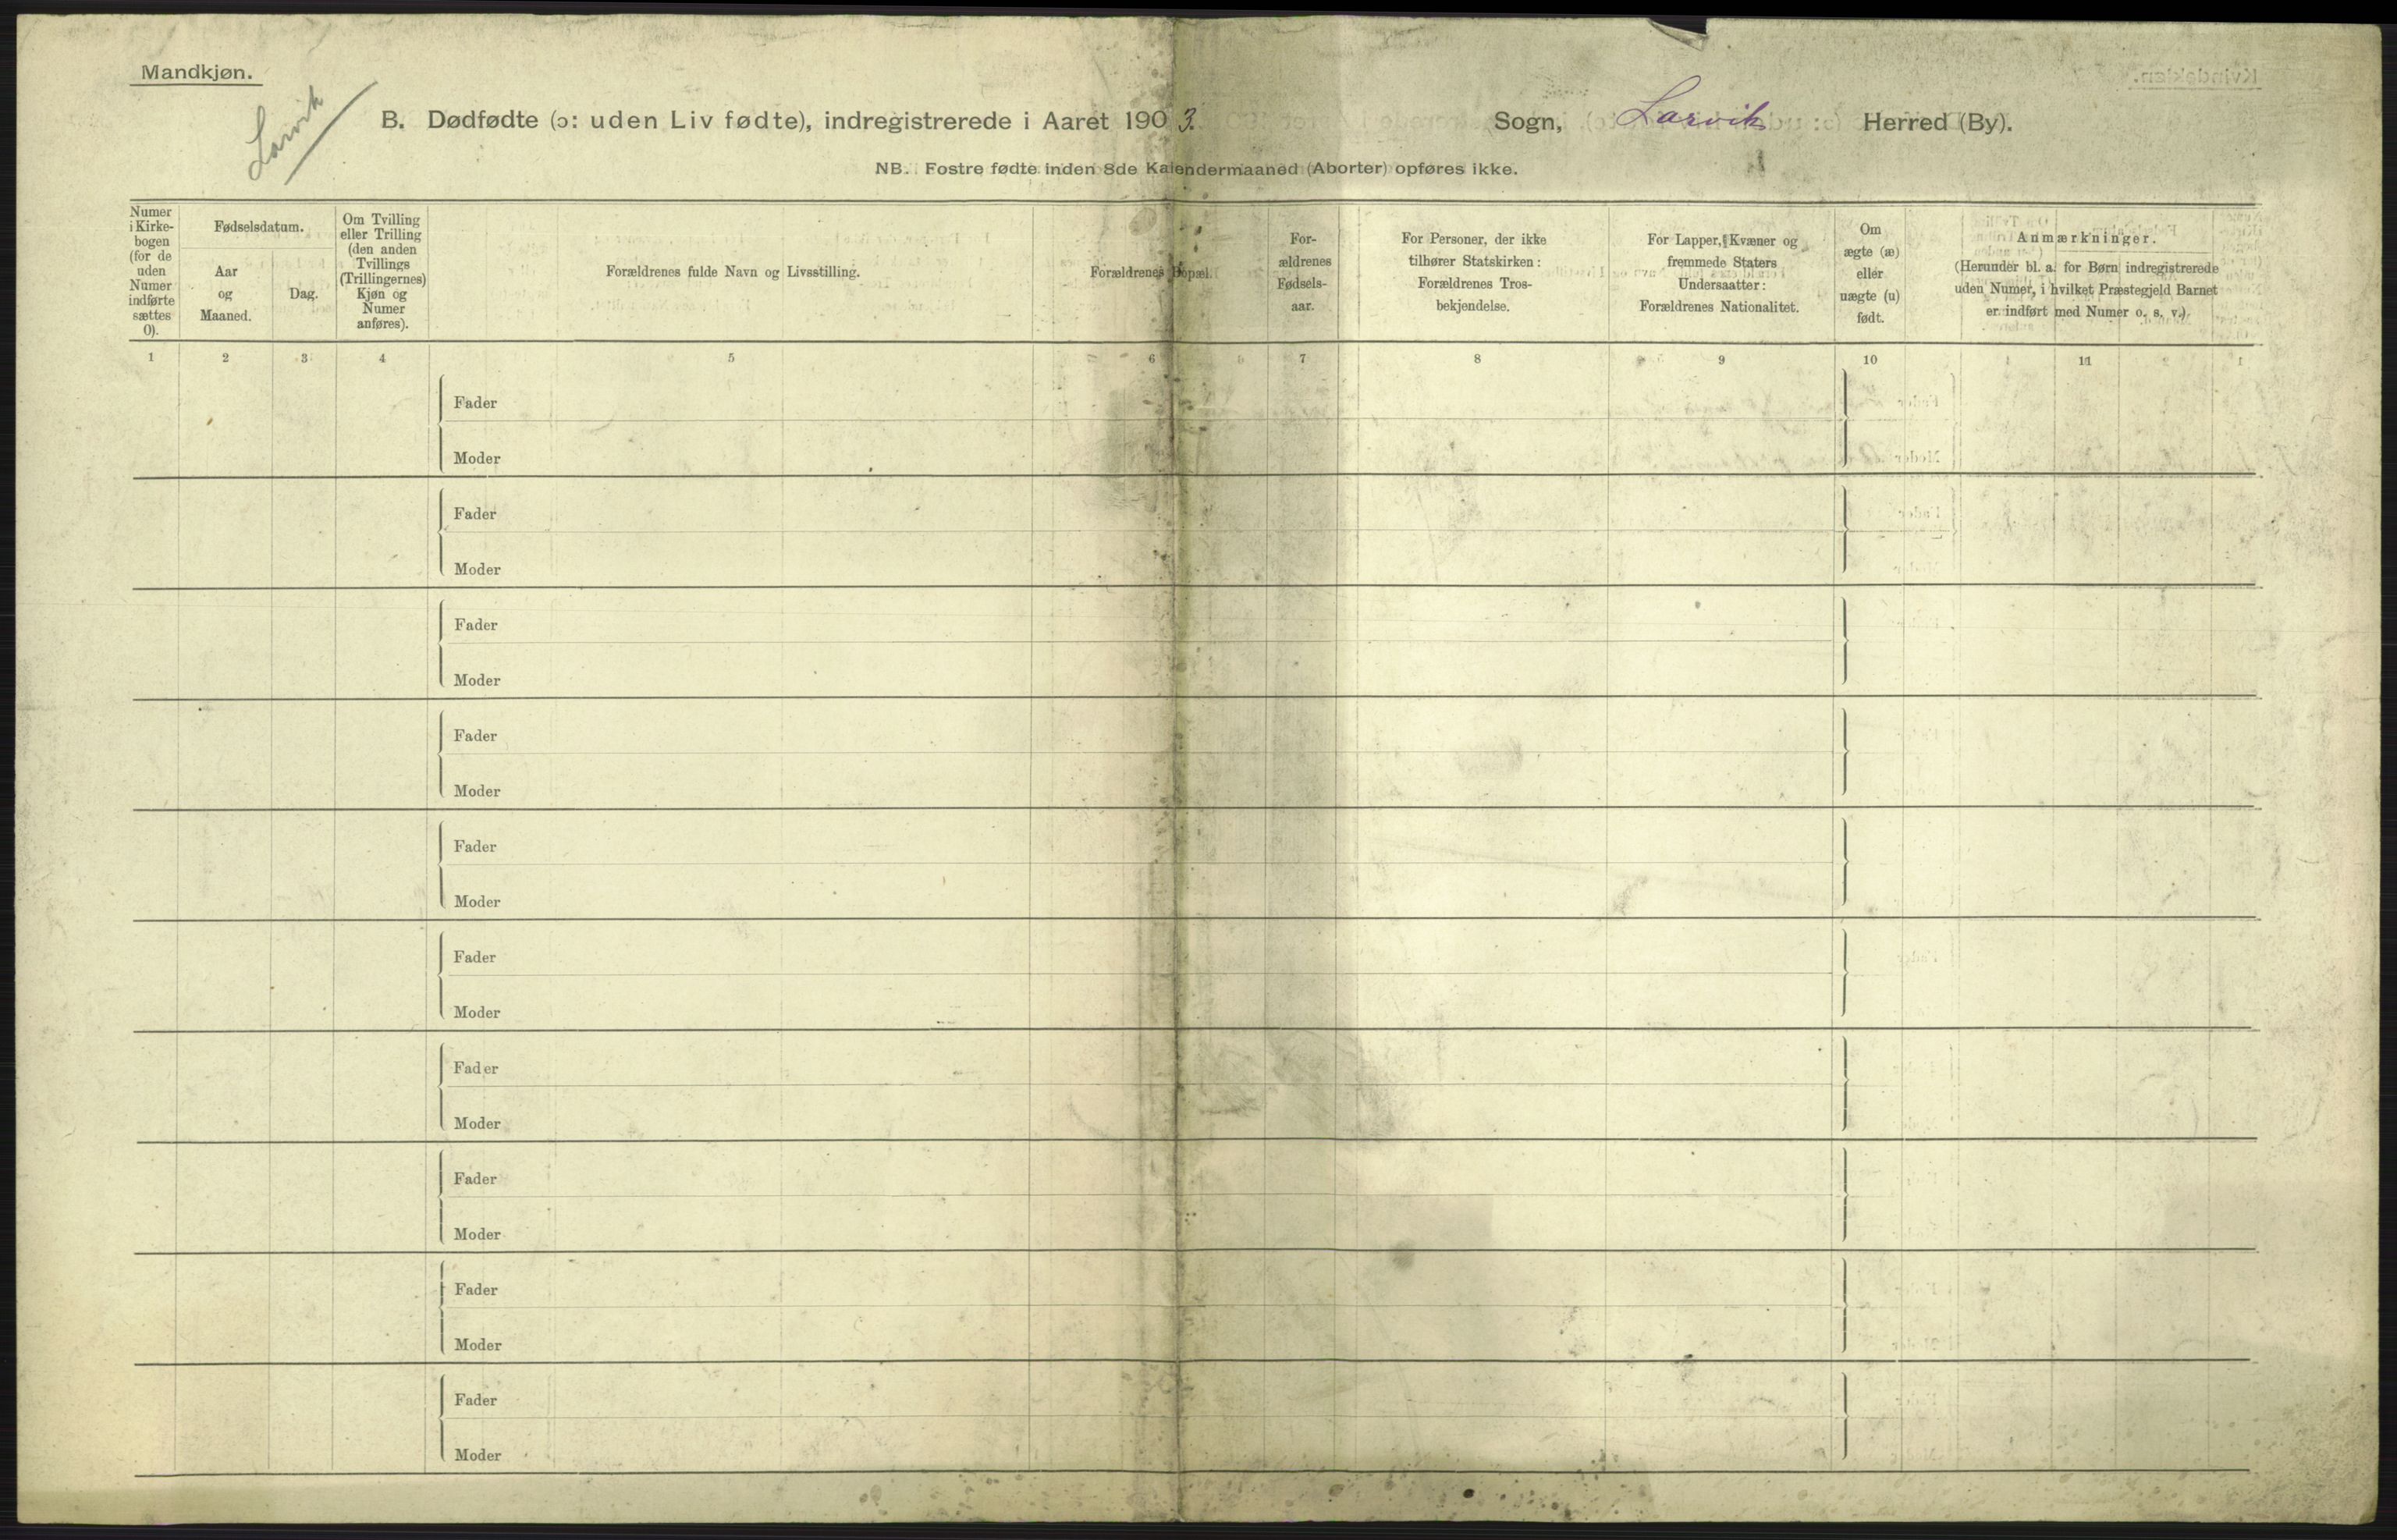 Mandkjøn.
Larvik
B. Dødfødte (ɔ: uden Liv fødte), indregistrerede i Aaret 1903. Sogn, Larvik Herred (By).
NB. Fostre fødte inden 8de Kalendermaaned (Aborter) opføres ikke.
Numer
i Kirke-
bogen
(for de
uden
Numer
indførte
sættes
0).
Fødselsdatum.
Aar
og
Maaned.
Dag.
Om Tvilling
eller Trilling
(den anden
Tvillings
(Trillingernes)
Kjøn og
Numer
anføres).
Forældrenes fulde Navn og Livsstilling.
Forældrenes Bopæl.
For-
ældrenes
Fødsels-
aar.
For Personer, der ikke
tilhører Statskirken:
Forældrenes Tros-
bekjendelse.
For Lapper, Kvæner og
fremmede Staters
Undersaatter:
Forældrenes Nationalitet.
Om
ægte (æ)
eller
uægte (u)
født.
Anmærkninger.
(Herunder bl. a. for Børn indregistrerede
uden Numer, i hvilket Præstegjeld Barnet
er indført med Numer o. s. v.)
1 2 3 4 5 6 7 8 9 10 11
Fader
Moder
Fader
Moder
Fader
Moder
Fader
Moder
Fader
Moder
Fader
Moder
Fader
Moder
Fader
Moder
Fader
Moder
Fader
Moder